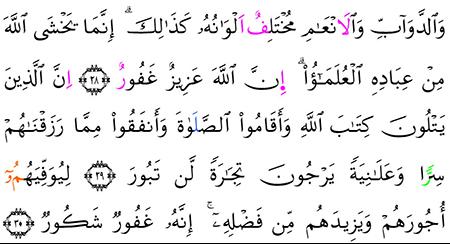 وَٱلدَّوَآبِّ وَٱلْأَنْعَـٰمِ مُخْتَلِفٌ أَلْوَٰنُهُۥ كَذَٰلِكَ ۗ إِنَّمَا يَخْشَى ٱللَّهَ
مِنْ عِبَادِهِ ٱلْعُلَمَـٰٓؤُا۟ ۗ إِنَّ ٱللَّهَ عَزِيزٌ غَفُورٌ ﴿٢٨﴾ إِنَّ ٱلَّذِينَ
يَتْلُونَ كِتَـٰبَ ٱللَّهِ وَأَقَامُوا۟ ٱلصَّلَوٰةَ وَأَنفَقُوا۟ مِمَّا رَزَقْنَـٰهُمْ
سِرًّا وَعَلَانِيَةً يَرْجُونَ تِجَـٰرَةً لَّن تَبُورَ ﴿٢٩﴾ لِيُوَفِّيَهُمُۥٓ
أُجُورَهُمْ وَيَزِيدَهُم مِّن فَضْلِهِۦٓ ۚ إِنَّهُۥ غَفُورٌ شَكُورٌ ﴿٣٠﴾